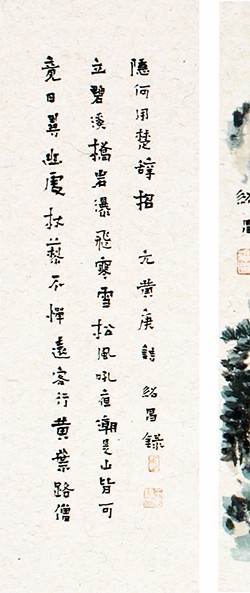 竟日尋幽處扶藜不憚遠客行黃葉路僧
立碧溪橋岩瀑飛寒雪松風吼夜潮是山皆可
隱何用楚辭招 元黃庚詩 紹昌錄
紹昌